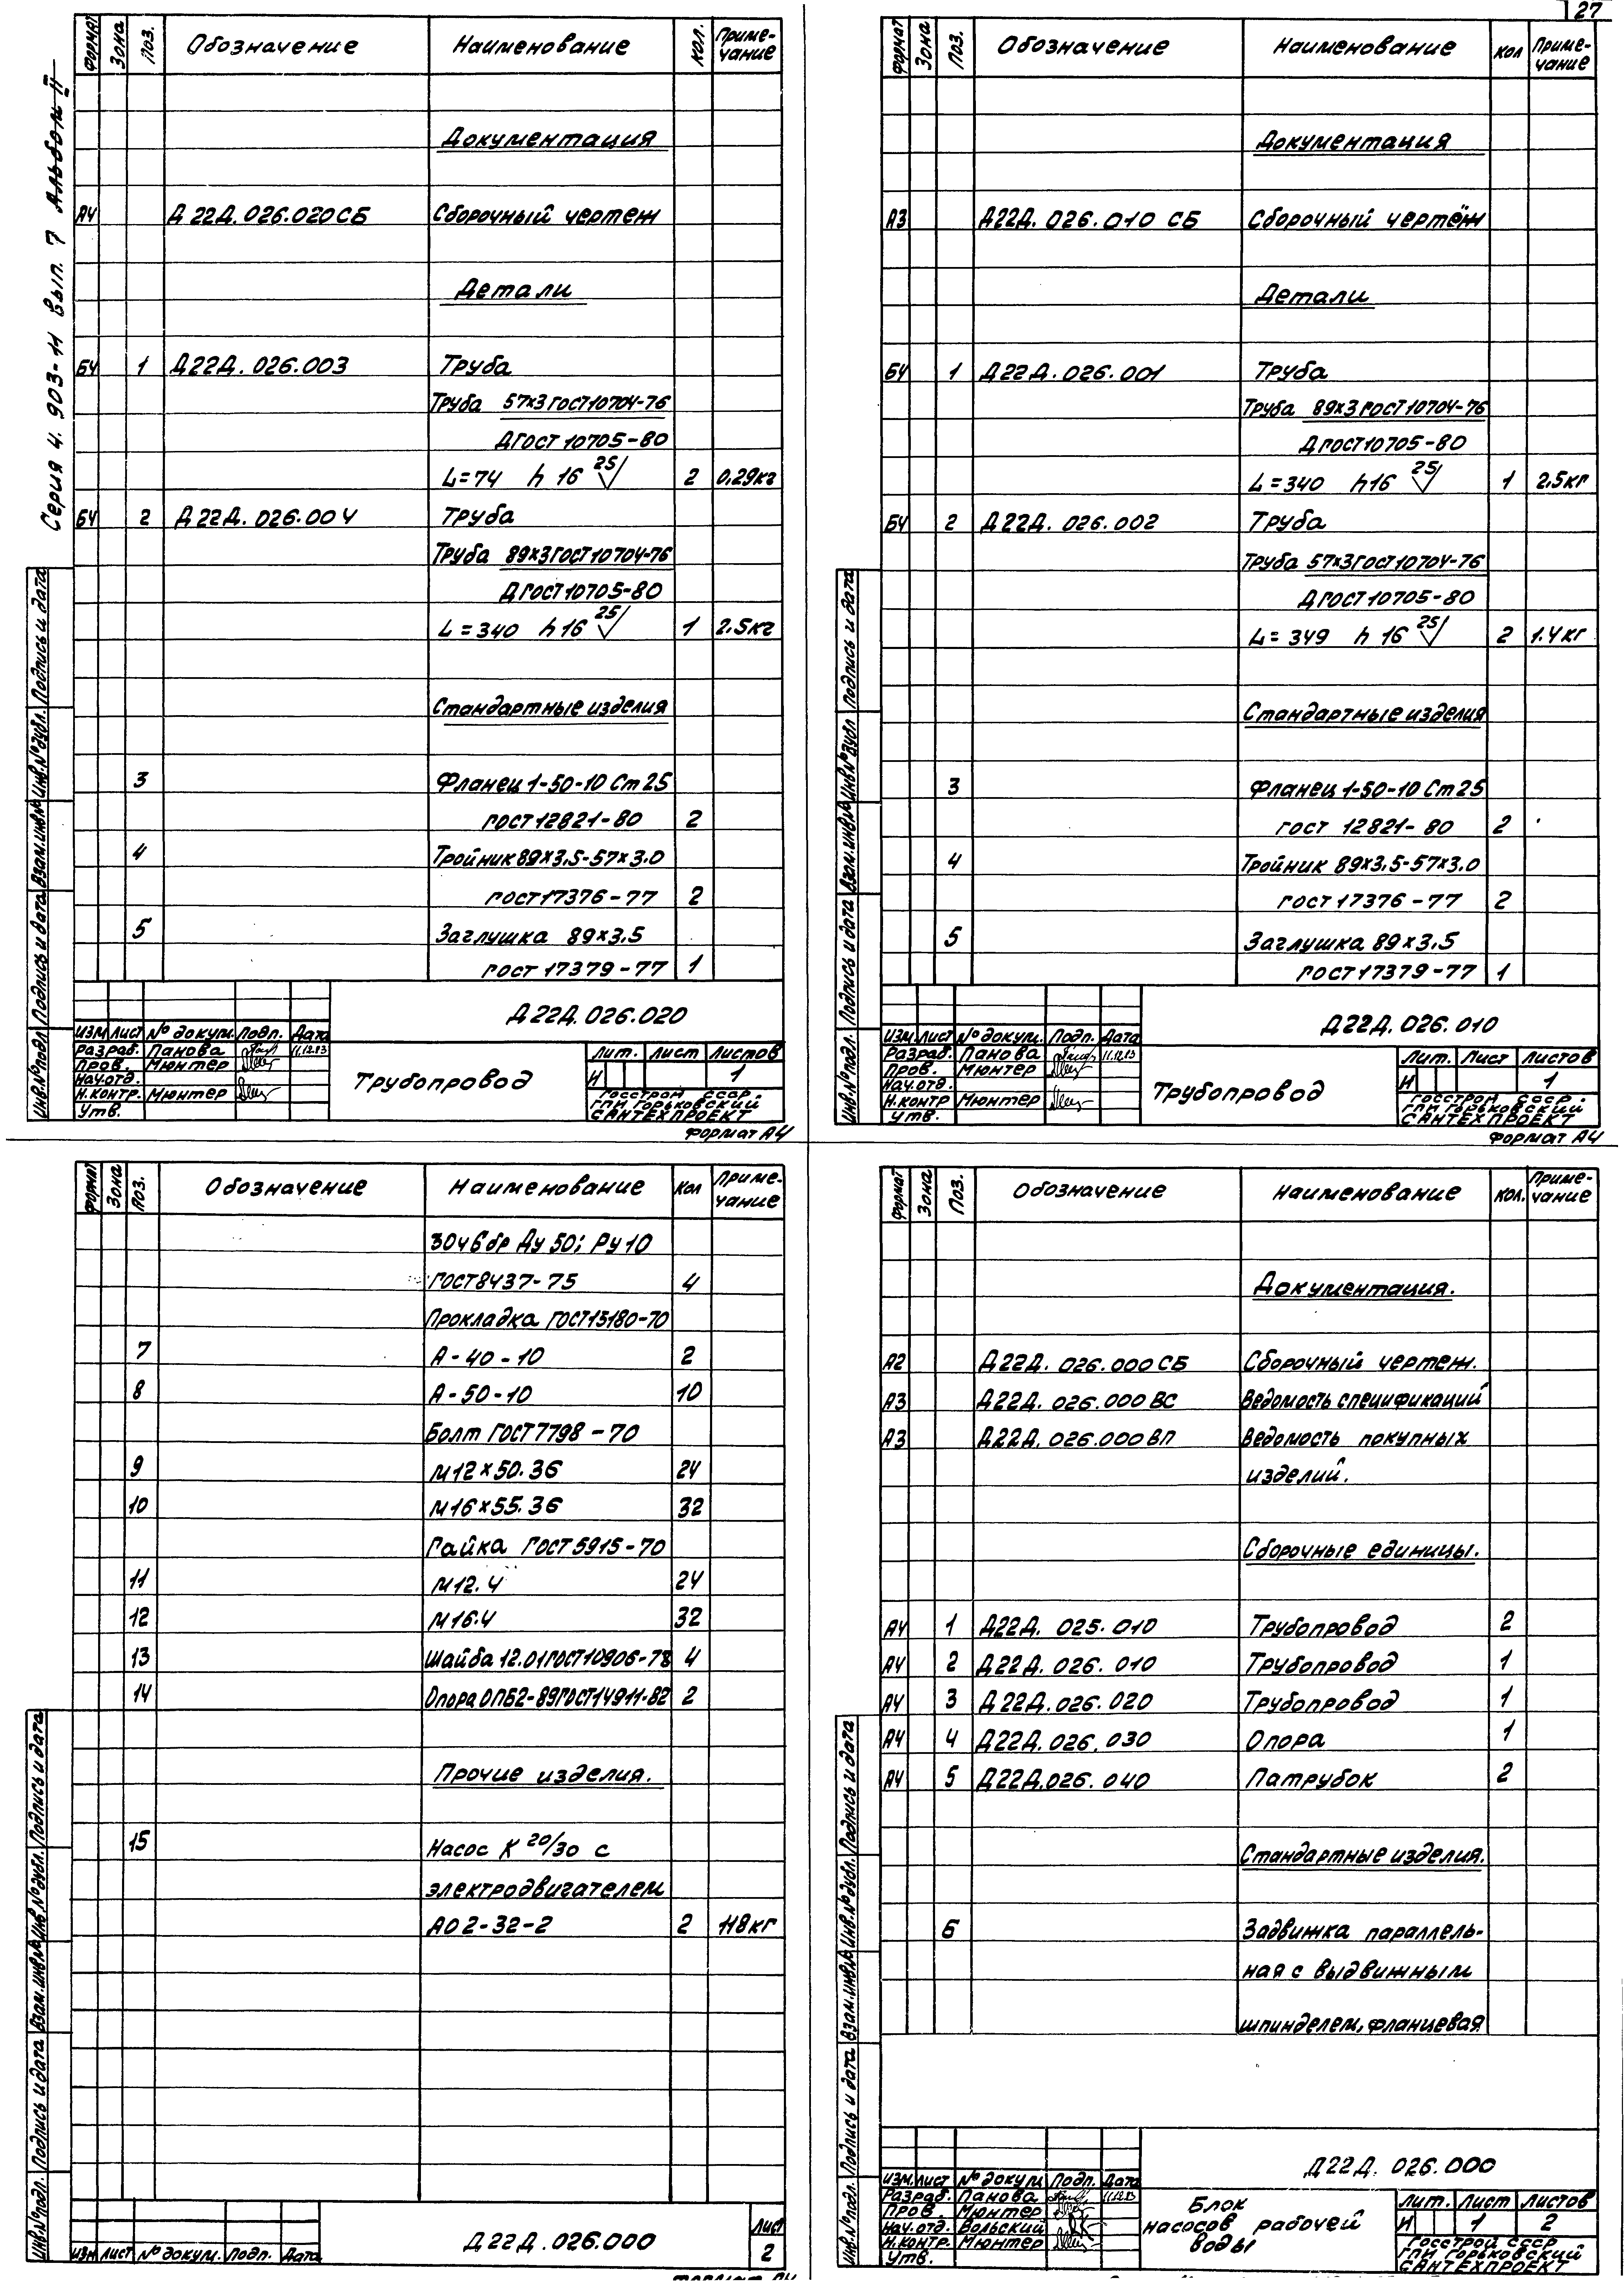 27
Серия 4.903-11 Вып. 7 Альбом II
Формат Зона Поз. Обозначение Наименование Кол. Приме-
чание
Документация
А4 Д22Д.026.020СБ Сборочный чертеж
Детали
БЧ 1 Д22Д.026.003 Труба
Труба 57х3ГОСТ10704-76
ДГОСТ10705-80
L=74 h16 25 2 0.29кг
БЧ 2 Д22Д.026.004 Труба
Труба 89х3ГОСТ10704-76
ДГОСТ10705-80
L=340 h16 25 1 2.5кг
Стандартные изделия
3 Фланец 1-50-10 Ст25
ГОСТ12821-80 2
4 Тройник 89х3.5-57х3.0
ГОСТ17376-77 2
5 Заглушка 89х3.5
ГОСТ17379-77 1
Инв.№подл. Подпись и дата Взам.инв№ Инв.№дубл. Подпись и дата
Д22Д.026.020
Изм Лист № докум. Подп. Дата
Разраб. Панова 11.12.83
Пров. Мюнтер
Нач.отд.
Н.контр. Мюнтер
Утв.
Трубопровод
Лит. Лист Листов
И 1
Госстрой СССР.
ГПИ Горьковский
САНТЕХПРОЕКТ
Формат А4
Формат Зона Поз. Обозначение Наименование Кол Приме-
чание
Документация
А3 Д22Д.026.010 СБ Сборочный чертёж
Детали
БЧ 1 Д22Д.026.001 Труба
Труба 89х3ГОСТ10704-76
ДГОСТ10705-80
L=340 h16 25 1 2.5кг
БЧ 2 Д22Д.026.002 Труба
Труба 57х3ГОСТ10704-76
ДГОСТ10705-80
L=349 h16 25 2 1.4кг
Стандартные изделия
3 Фланец 1-50-10 Ст25
ГОСТ 12821-80 2
4 Тройник 89х3.5-57х3.0
ГОСТ17376-77 2
5 Заглушка 89х3.5
ГОСТ17379-77 1
Инв.№подл. Подпись и дата Взам.инв№ Инв№дубл Подпись и дата
Д22Д.026.010
Изм. Лист № докум. Подп. Дата
Разраб. Панова 11.12.83
Пров. Мюнтер
Нач.отд.
Н.контр Мюнтер
Утв.
Трубопровод
Лит. Лист Листов
И 1
Госстрой СССР.
ГПИ Горьковский
САНТЕХПРОЕКТ
Формат А4
Формат Зона Поз. Обозначение Наименование Кол Приме-
чание
30ч6бр Ду 50; Ру10
ГОСТ8437-75 4
Прокладка ГОСТ15180-70
7 А-40-10 2
8 А-50-10 10
Болт ГОСТ7798-70
9 М12х50.36 24
10 М16х55.36 32
Гайка ГОСТ5915-70
11 М12.4 24
12 М16.4 32
13 Шайба 12.01ГОСТ10906-78 4
14 Опора ОПБ2-89ГОСТ14911-82 2
Прочие изделия.
15 Насос К 20/30 с
электродвигателем
АО2-32-2 2 118кг
Инв.№подл. Подпись и дата Взам.инв№ Инв.№дубл. Подпись и дата
Изм Лист № докум. Подп. Дата
Д22Д.026.000
Лист
2
Формат А4
Формат Зона Поз. Обозначение Наименование Кол. Приме-
чание
Документация.
А2 Д22Д.026.000СБ Сборочный чертеж.
А3 Д22Д.026.000ВС Ведомость спецификаций
А3 Д22Д.026.000ВП Ведомость покупных
изделий.
Сборочные единицы.
А4 1 Д22Д.025.010 Трубопровод 2
А4 2 Д22Д.026.010 Трубопровод 1
А4 3 Д22Д.026.020 Трубопровод 1
А4 4 Д22Д.026.030 Опора 1
А4 5 Д22Д.026.040 Патрубок 2
Стандартные изделия.
6 Задвижка параллель-
ная с выдвижным
шпинделем, фланцевая
Инв.№подл. Подпись и дата Взам.инв№ Инв.№дубл. Подпись и дата
Д22Д.026.000
Изм. Лист № докум Подп. Дата
Разраб. Панова 11.12.83
Пров. Мюнтер
Нач.отд. Вольский
Н.контр. Мюнтер
Утв.
Блок
насосов рабочей
воды
Лит. Лист Листов
И 1 2
Госстрой СССР
ГПИ Горьковский
САНТЕХПРОЕКТ